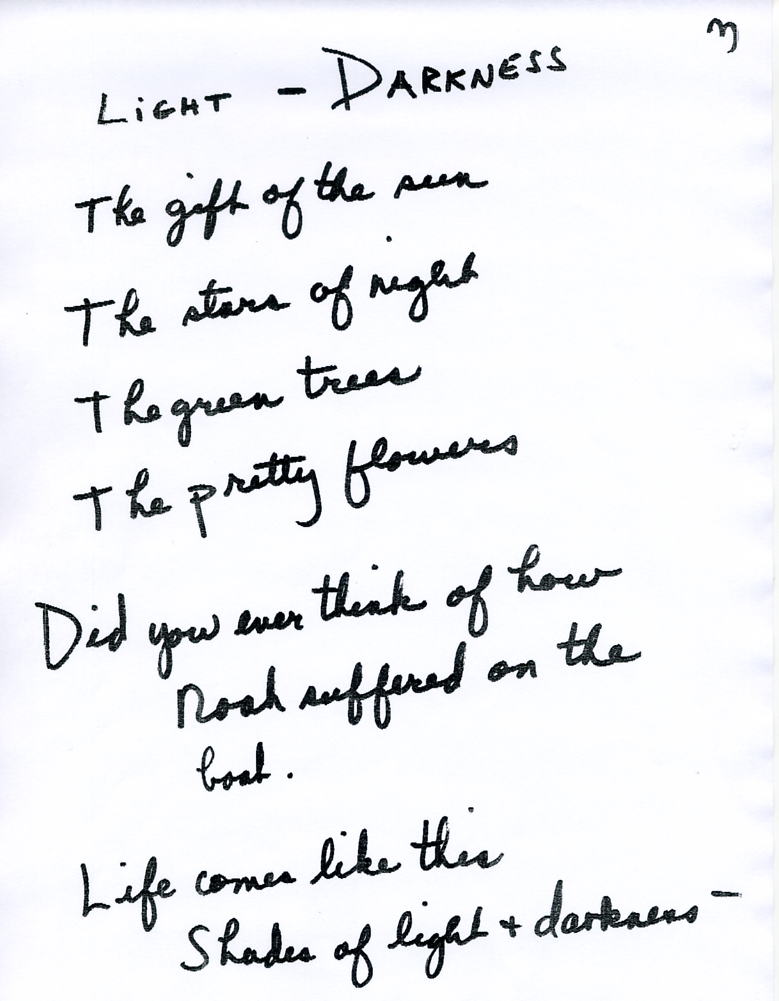 LiGHT - DARKNESS
The gift of the sun
The stars of night
The green trees
The pretty flowers
Did you ever think of how
Noah suffered on the
boat.
Life comes like this
Shades of light + darkness -